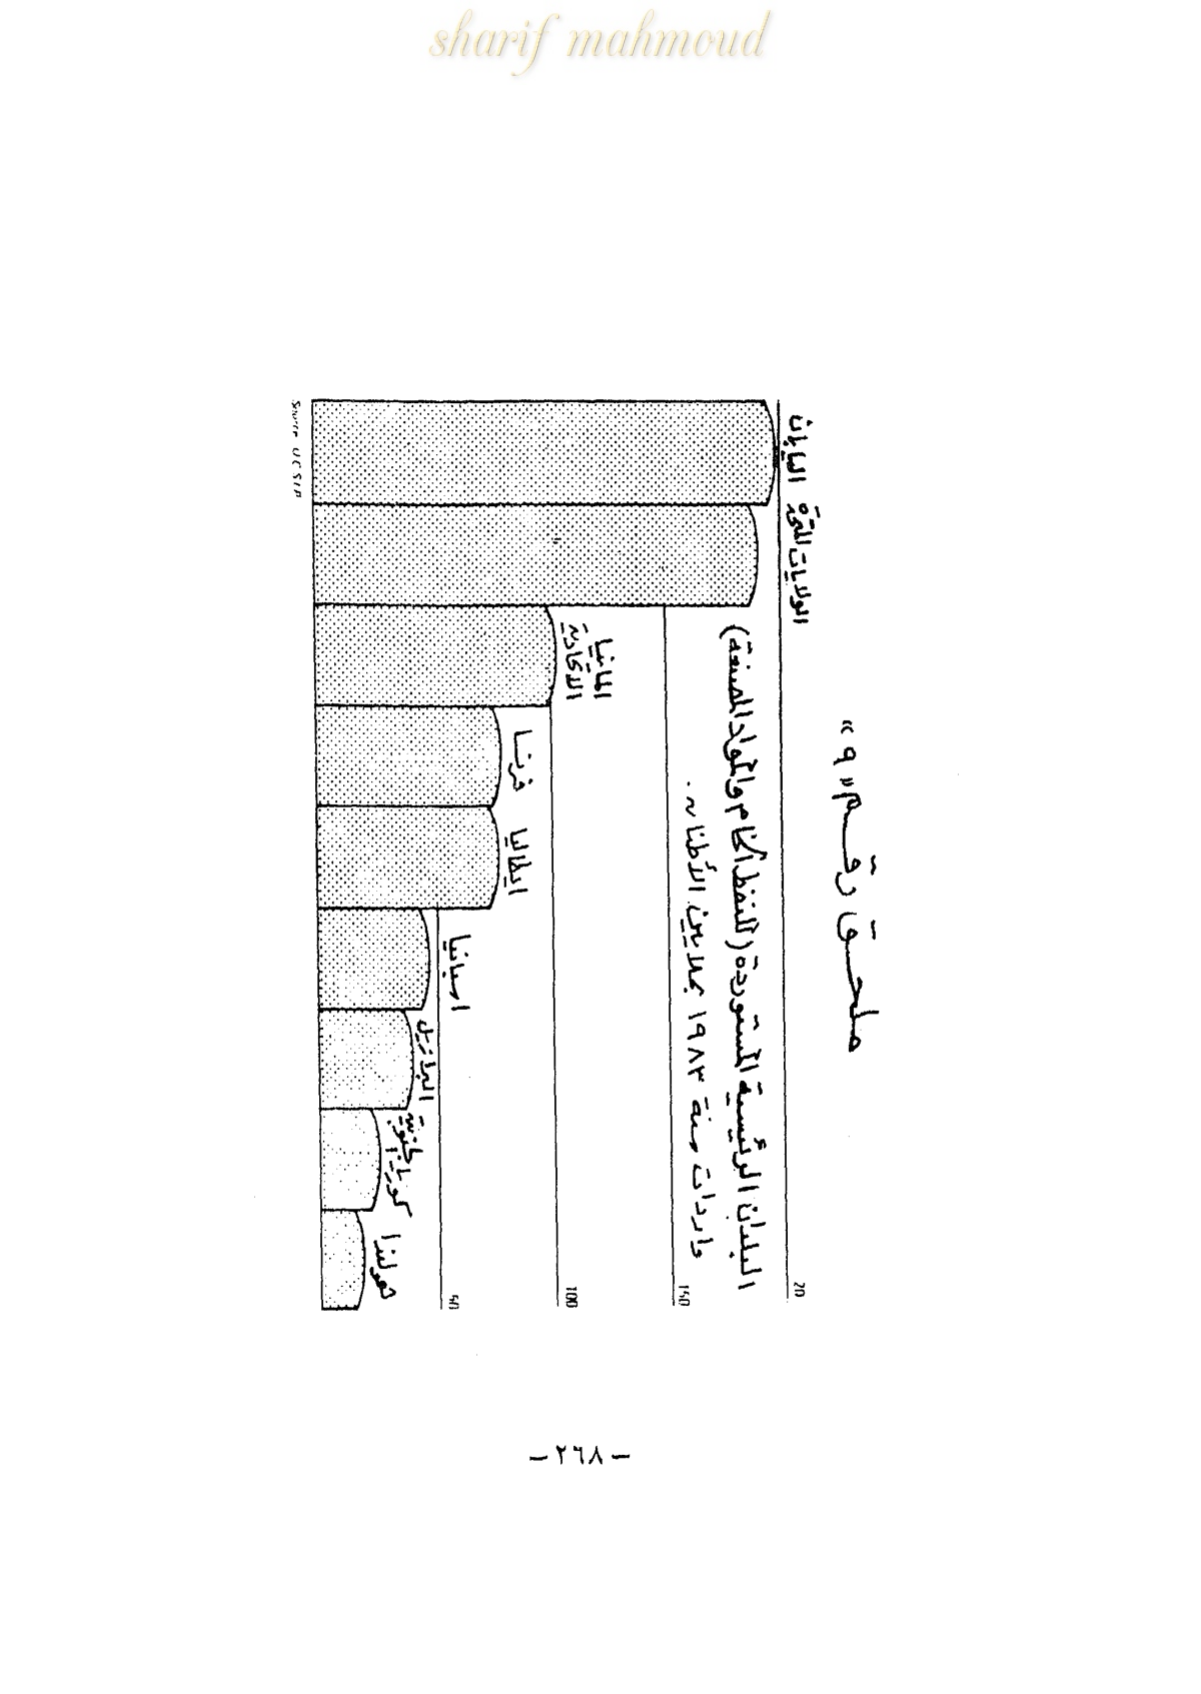 sharif mahmoud
ملحق رقم «٩»
البلدان الرئيسية المستوردة (للنفط الخام والمواد المصنعة)
واردات سنة ١٩٨٣ بملايين الأطنان.
20
150
100
50
اليابان
الولايات المتحدة
المانيا
الاتحادية
فرنسا
ايطاليا
اسبانيا
البرازيل
كوريا الجنوبية
هولندا
Source
–٢٦٨–